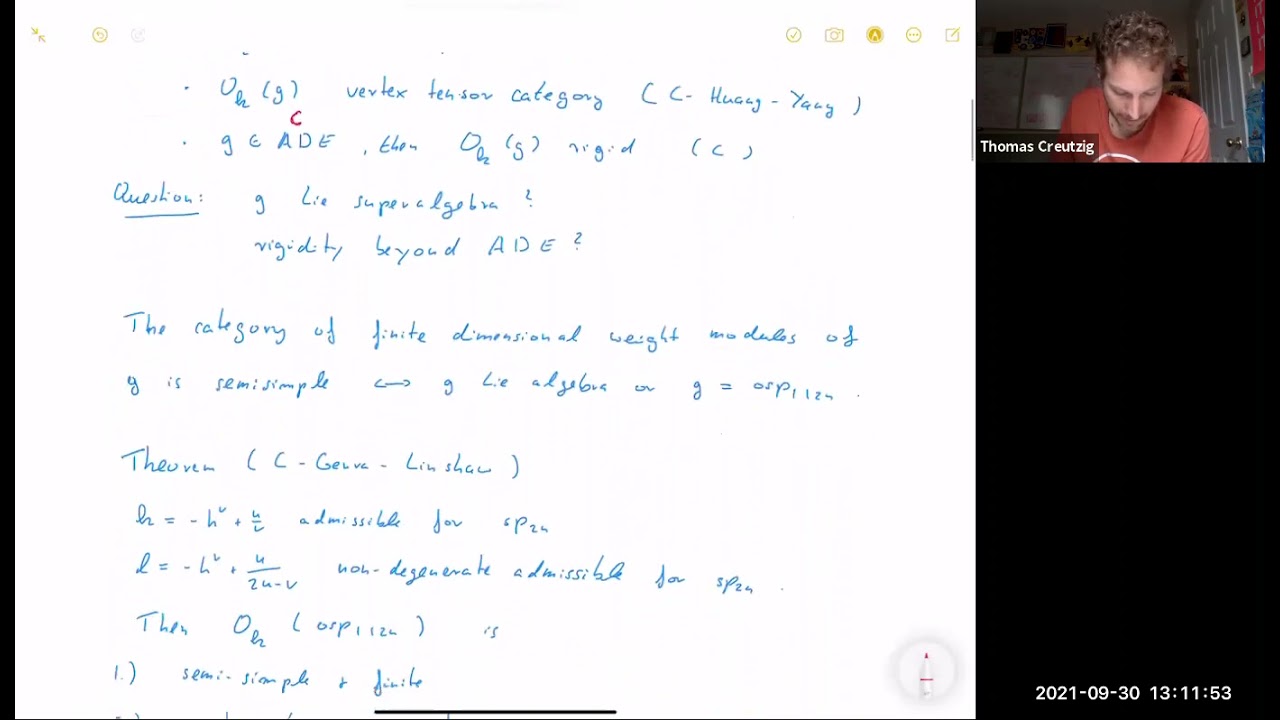 · O_k (g) vertex tensor category ( C - Huang - Yang )
C
· g ∈ A D E , then O_k (g) rigid ( C )
Question: g Lie superalgebra ?
rigidity beyond A D E ?
The category of finite dimensional weight modules of
g is semisimple ⟺ g Lie algebra or g = osp_{1|2n} .
Theorem ( C - Genra - Linshaw )
k = -h^∨ + u/v admissible for sp_{2n}
l = -h^∨ + u/(2u-v) non-degenerate admissible for sp_{2n} .
Then O_k ( osp_{1|2n} ) is
1.) semi-simple & finite
Thomas Creutzig
2021-09-30 13:11:53